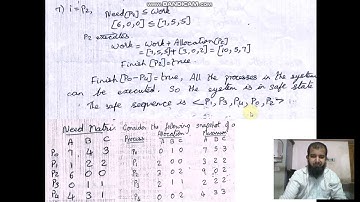 www.BANDICAM.com
7) i=P2, Need[P2] ≤ Work
[6,0,0] ≤ [7,5,5]
P2 executes
Work = Work + Allocation[P2]
= [7,5,5] + [3,0,2] = [10,5,7]
Finish[P2] = true
Finish[P0-P4] = true, All the processes in the system
can be executed. So the system is in safe state
The safe sequence is <P1, P3, P4, P0, P2>
Need Matrix
A B C
P0 7 4 3
P1 1 2 2
P2 6 0 0
P3 0 1 1
P4 4 3 1
Consider the following snapshot of a
Process Allocation Maximum
A B C A B C
P0 0 1 0 7 5 3
P1 2 0 0 3 2 2
P2 3 0 2 9 0 2
P3 2 1 1 2 2 2
P4 0 0 2 4 3 3